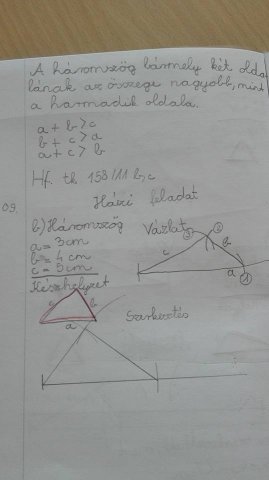 A háromszög bármely két olda
lának az összege nagyobb, mint
a harmadik oldala.
a + b > c
b + c > a
a + c > b
Hf. tk 158/11 b, c
Házi feladat
09.
b) Háromszög
Vázlat
a = 3 cm
b = 4 cm
c = 5 cm
c
b
a
2
1
c
b
a
Szerkesztés